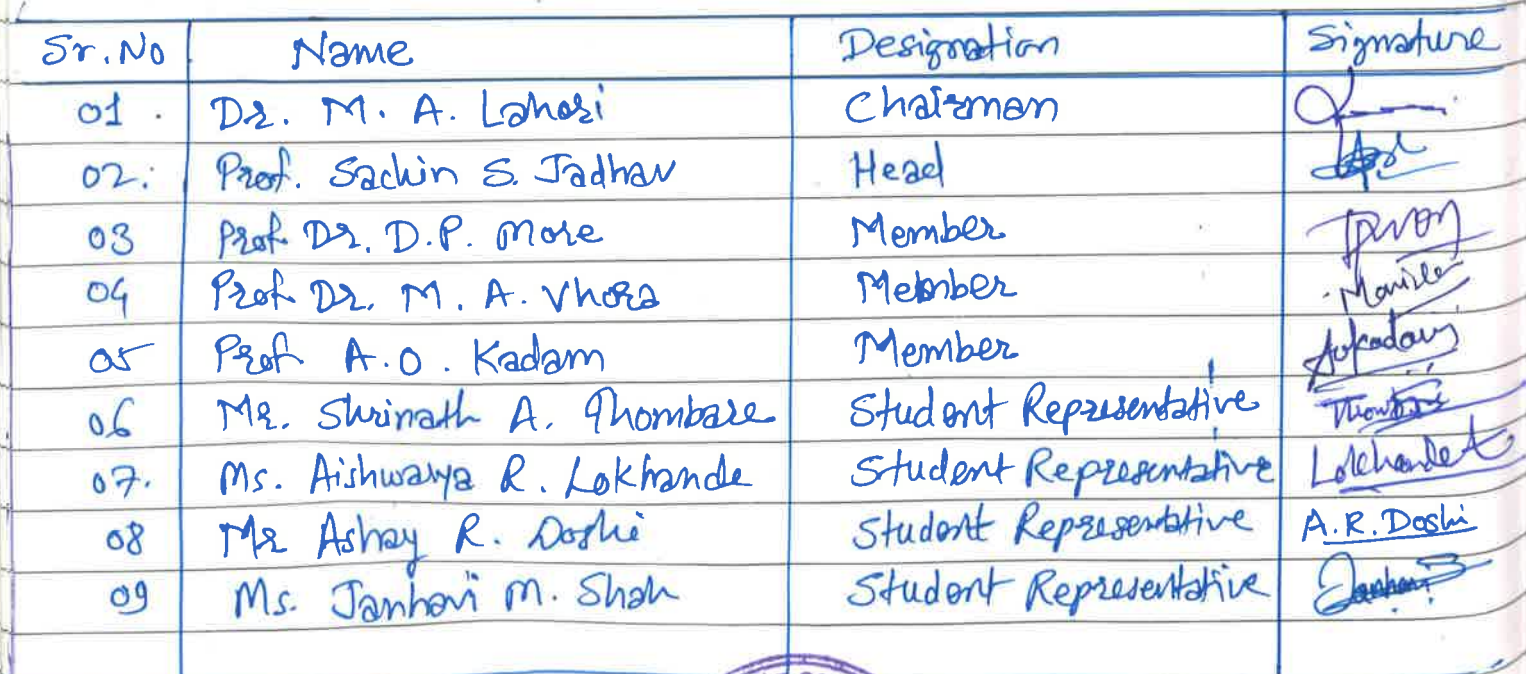 Sr. No Name Designation Signature
01. Dr. M. A. Lahori Chairman
02. Prof. Sachin S. Jadhav Head
03 Prof Dr. D.P. More Member
04 Prof Dr. M. A. Vhora Member
05 Prof A.O. Kadam Member Aokadam
06 Mr. Shrinath A. Thombare Student Representative
07. Ms. Aishwarya R. Lokhande Student Representative Lokhande A
08 Mr Ashay R. Doshi Student Representative A.R.Doshi
09 Ms. Janhavi M. Shah Student Representative